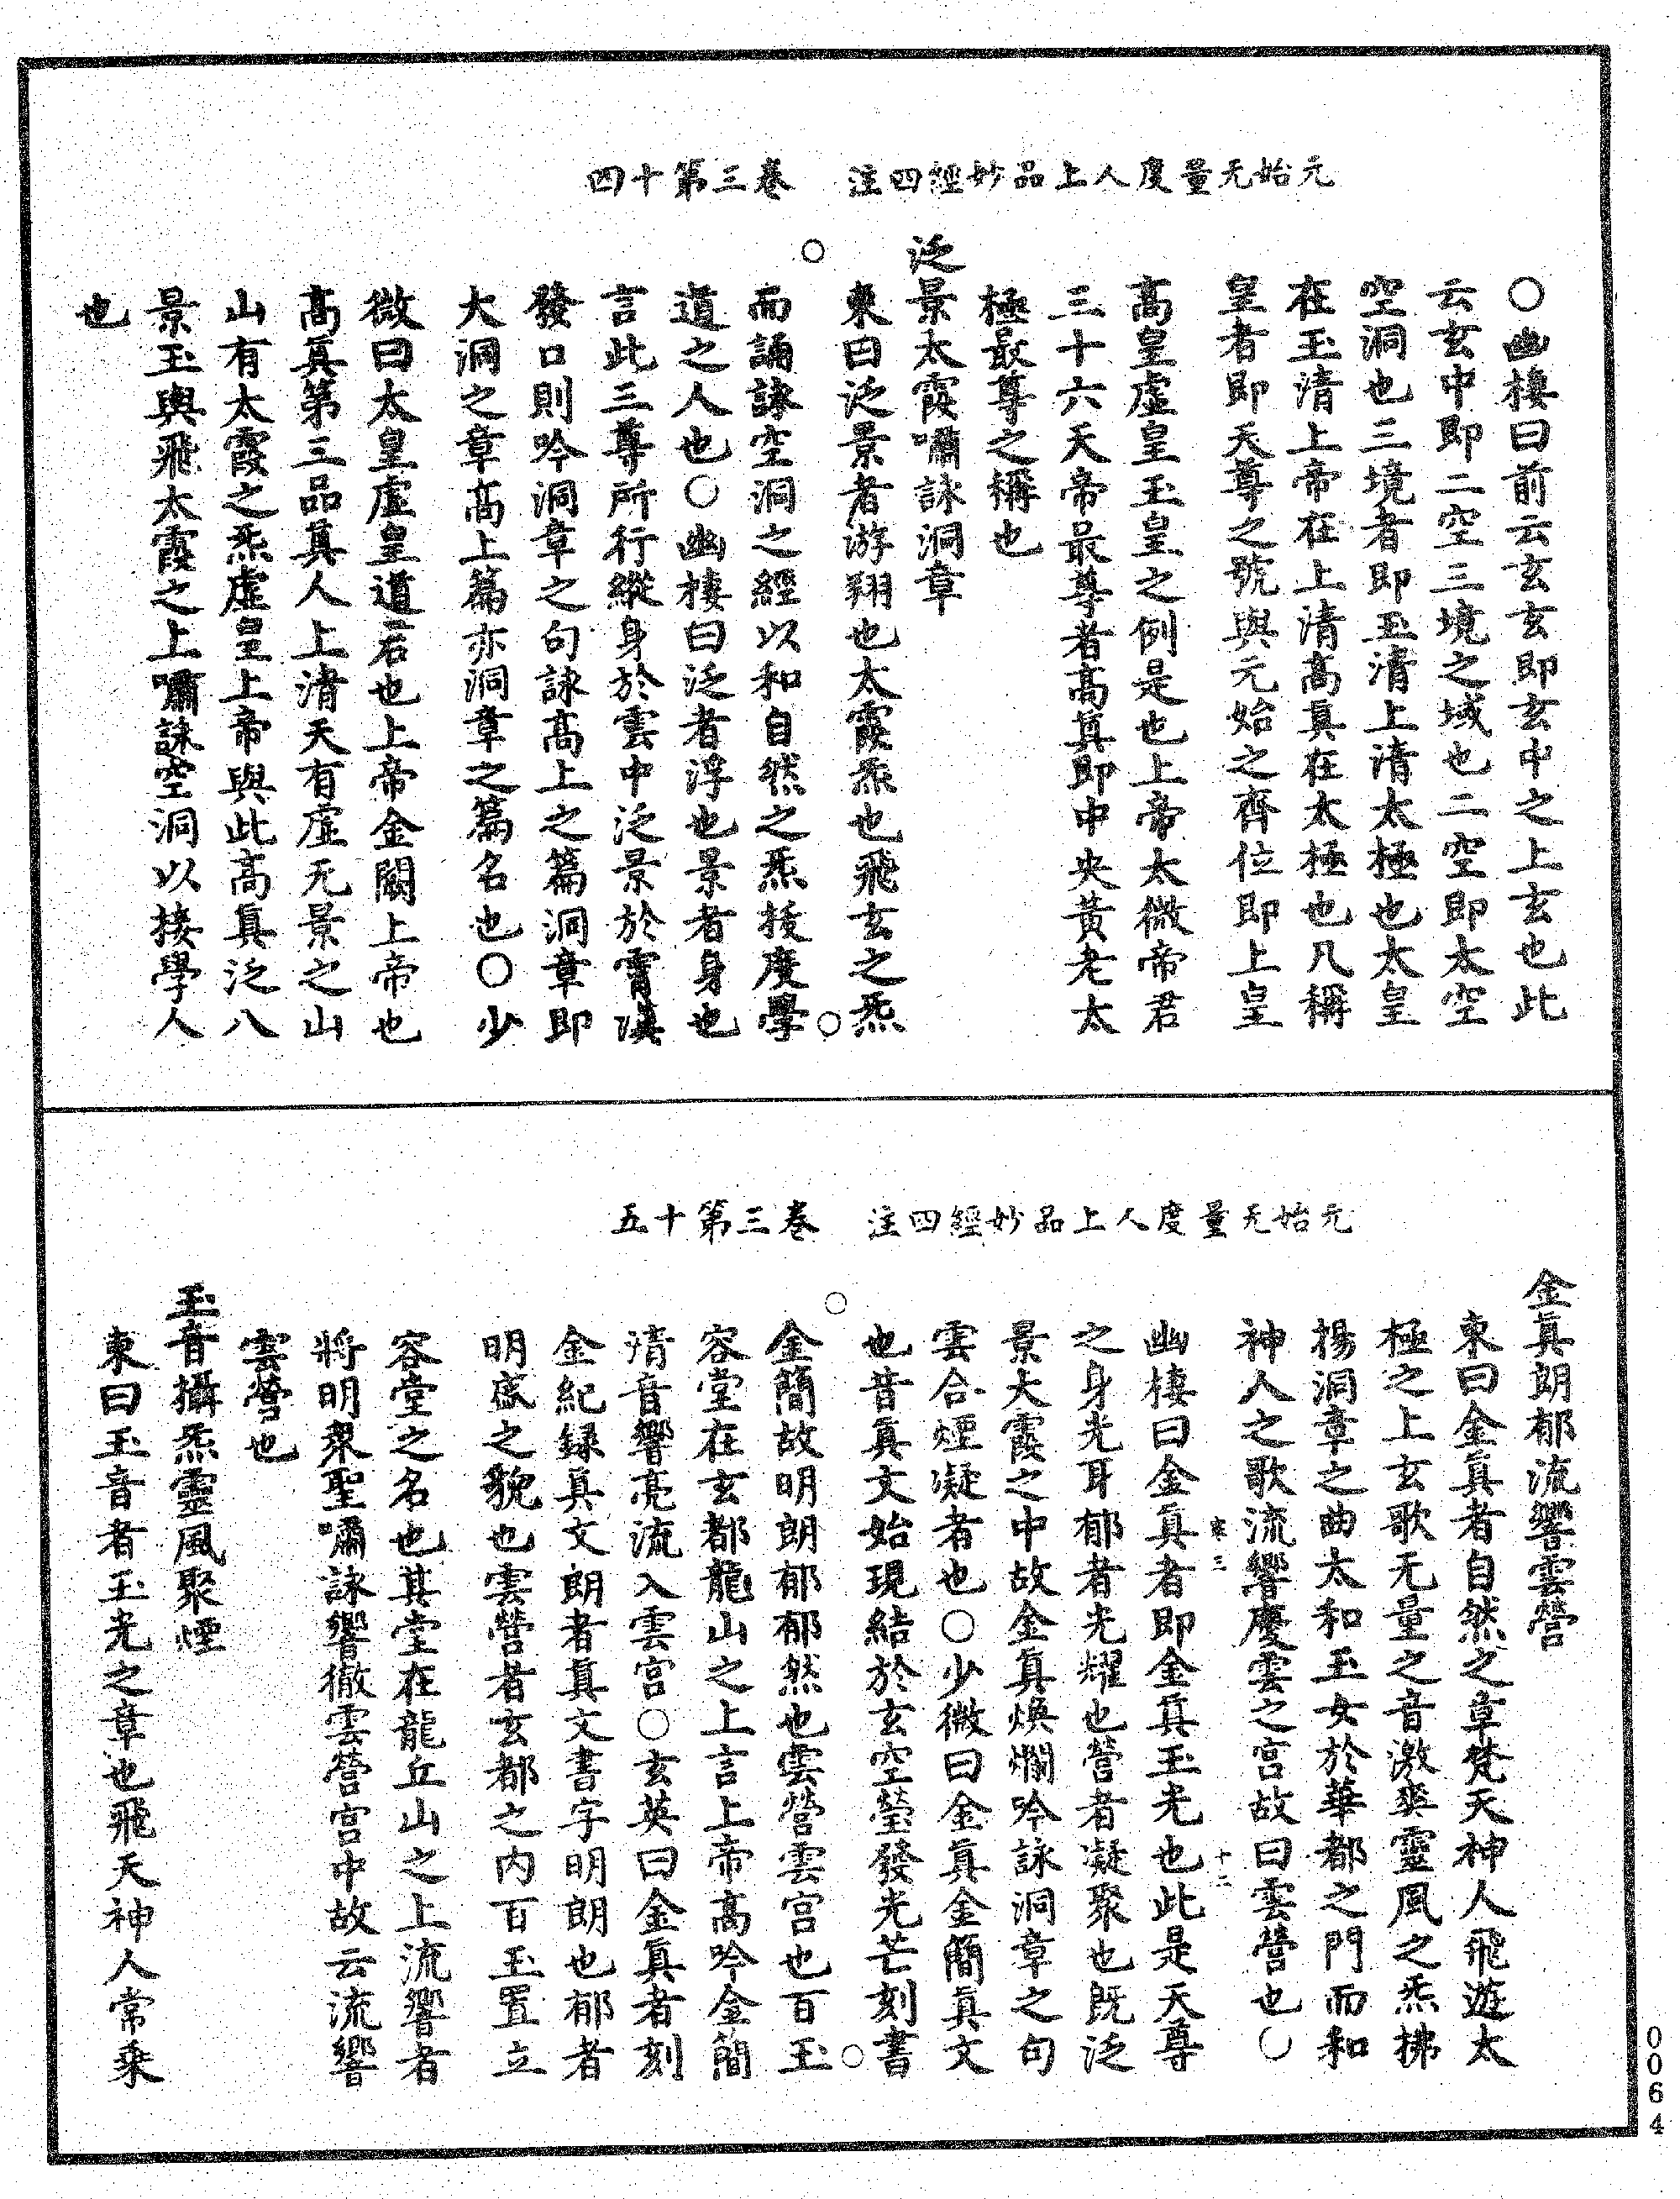 元始无量度人上品妙經四注　卷三第十四
○幽棲曰前云玄玄即玄中之上玄也此
云玄中即二空三境之域也二空即太空
空洞也三境者即玉清上清太極也太皇
在玉清上帝在上清高真在太極也凡稱
皇者即天尊之號與元始之齊位即上皇
高皇虛皇玉皇之例是也上帝太微帝君
三十六天帝最尊者高真即中央黃老太
極最尊之稱也
泛景太霞嘯詠洞章
東曰泛景者游翔也太霞炁也飛玄之炁
而誦詠空洞之經以和自然之炁拔度學
道之人也○幽棲曰泛者浮也景者身也
言此三尊所行縱身於雲中泛景於霄漢
發口則吟洞章之句詠高上之篇洞章即
大洞之章高上篇亦洞章之篇名也○少
微曰太皇虛皇道君也上帝金闕上帝也
高真第三品真人上清天有虛无景之山
山有太霞之炁虛皇上帝與此高真泛八
景玉輿飛太霞之上嘯詠空洞以接學人
也
元始无量度人上品妙經四注　卷三第十五
金真朗郁流響雲營
東曰金真者自然之章梵天神人飛遊太
極之上玄歌无量之音激爽靈風之炁拂
揚洞章之曲太和玉女於華都之門而和
神人之歌流響慶雲之宮故曰雲營也○
幽棲曰金真者即金真玉光也此是天尊
之身光耳郁者光耀也營者凝聚也既泛
景大霞之中故金真煥爛吟詠洞章之句
雲合煙凝者也○少微曰金真金簡真文
也昔真文始現結於玄空瑩發光芒刻書
金簡故明朗郁郁然也雲營雲宮也百玉
容堂在玄都龍山之上言上帝高吟金簡
清音響亮流入雲宮○玄英曰金真者刻
金紀録真文朗者真文書字明朗也郁者
明盛之貌也雲營者玄都之內百玉置立
容堂之名也其堂在龍丘山之上流響者
將明衆聖嘯詠響徹雲營宮中故云流響
雲營也
玉音攝炁靈風聚煙
東曰玉音者玉光之章也飛天神人常乘
0064